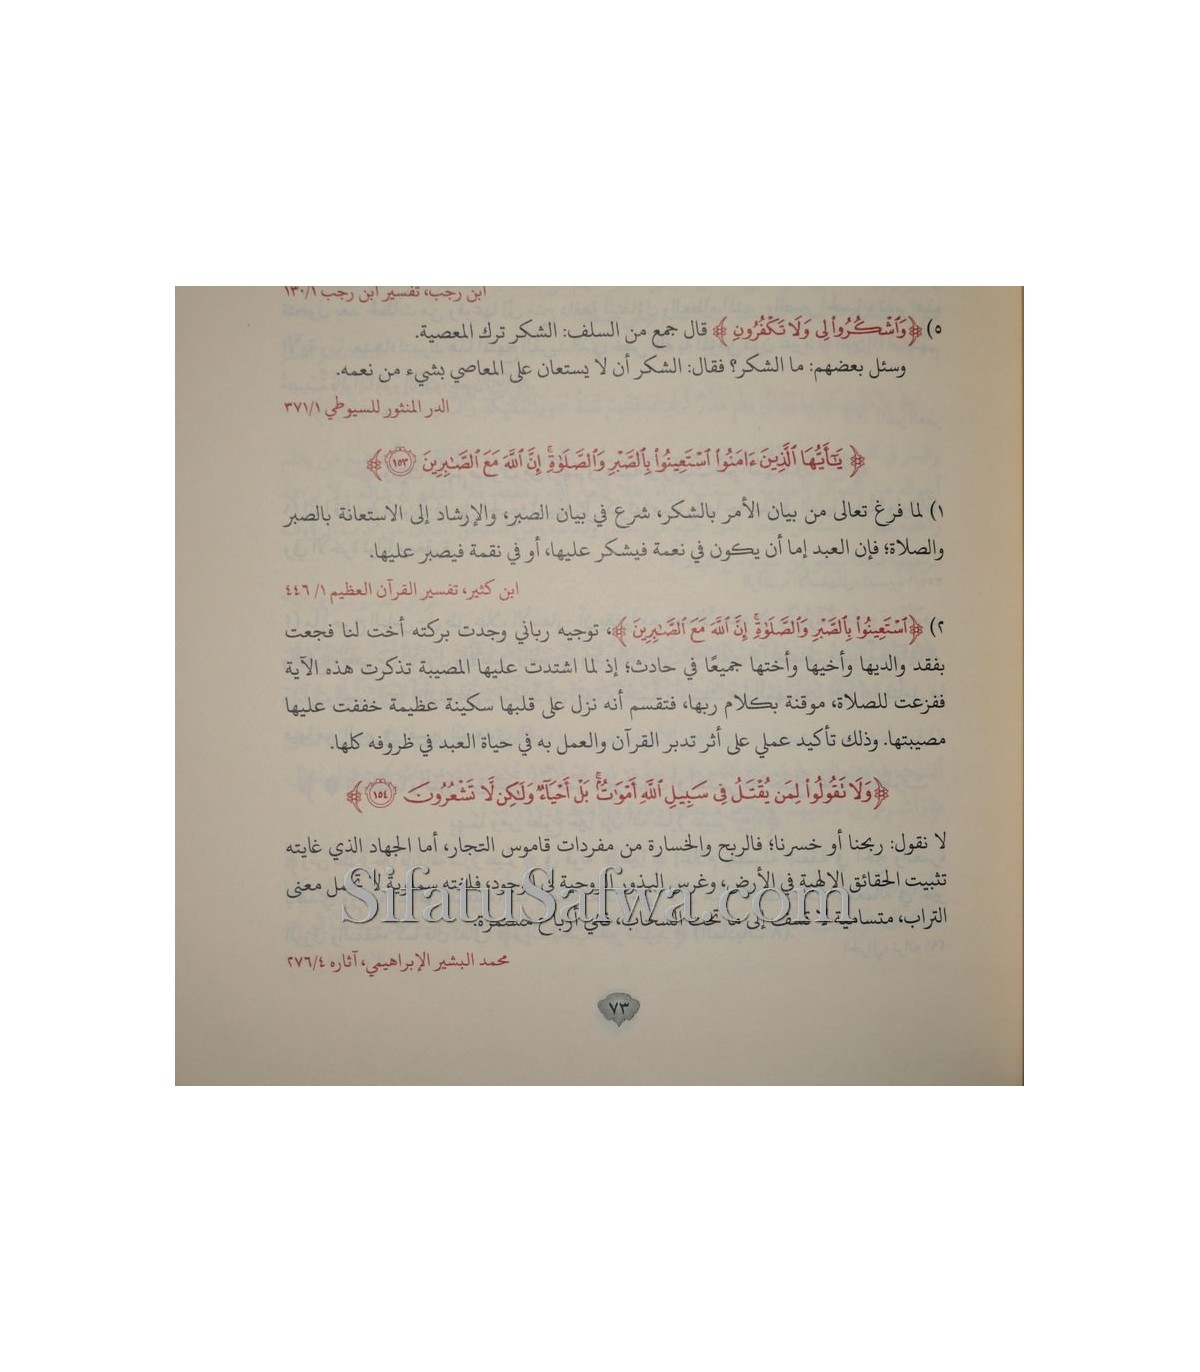 ابن رجب، تفسير ابن رجب ١٣٠/١
٥) ﴿وَٱشْكُرُوا۟ لِى وَلَا تَكْفُرُونِ﴾ قال جمع من السلف: الشكر ترك المعصية.
وسئل بعضهم: ما الشكر؟ فقال: الشكر أن لا يستعان على المعاصي بشيء من نعمه.
الدر المنثور للسيوطي ٣٧١/١
﴿يَٰٓأَيُّهَا ٱلَّذِينَ ءَامَنُوا۟ ٱسْتَعِينُوا۟ بِٱلصَّبْرِ وَٱلصَّلَوٰةِ ۚ إِنَّ ٱللَّهَ مَعَ ٱلصَّٰبِرِينَ ١٥٣﴾
١) لما فرغ تعالى من بيان الأمر بالشكر، شرع في بيان الصبر، والإرشاد إلى الاستعانة بالصبر
والصلاة؛ فإن العبد إما أن يكون في نعمة فيشكر عليها، أو في نقمة فيصبر عليها.
ابن كثير، تفسير القرآن العظيم ١/ ٤٤٦
٢) ﴿ٱسْتَعِينُوا۟ بِٱلصَّبْرِ وَٱلصَّلَوٰةِ ۚ إِنَّ ٱللَّهَ مَعَ ٱلصَّٰبِرِينَ﴾، توجيه رباني وجدت بركته أخت لنا فجعت
بفقد والديها وأخيها وأختها جميعًا في حادث؛ إذ لما اشتدت عليها المصيبة تذكرت هذه الآية
ففزعت للصلاة، موقنة بكلام ربها، فتقسم أنه نزل على قلبها سكينة عظيمة خففت عليها
مصيبتها. وذلك تأكيد عملي على أثر تدبر القرآن والعمل به في حياة العبد في ظروفه كلها.
﴿وَلَا تَقُولُوا۟ لِمَن يُقْتَلُ فِى سَبِيلِ ٱللَّهِ أَمْوَٰتٌۢ ۚ بَلْ أَحْيَآءٌ وَلَٰكِن لَّا تَشْعُرُونَ ١٥٤﴾
لا نقول: ربحنا أو خسرنا؛ فالربح والخسارة من مفردات قاموس التجار، أما الجهاد الذي غايته
تثبيت الحقائق الإلهية في الأرض، وغرس البذور الروحية في الوجود، فلغته سماوية لا تحمل معنى
التراب، متسامية لا تسف إلى ما تحت السحاب، ففي أرباح مستمرة.
SifatuSafwa.com
محمد البشير الإبراهيمي، آثاره ٢٧٦/٤
٧٣